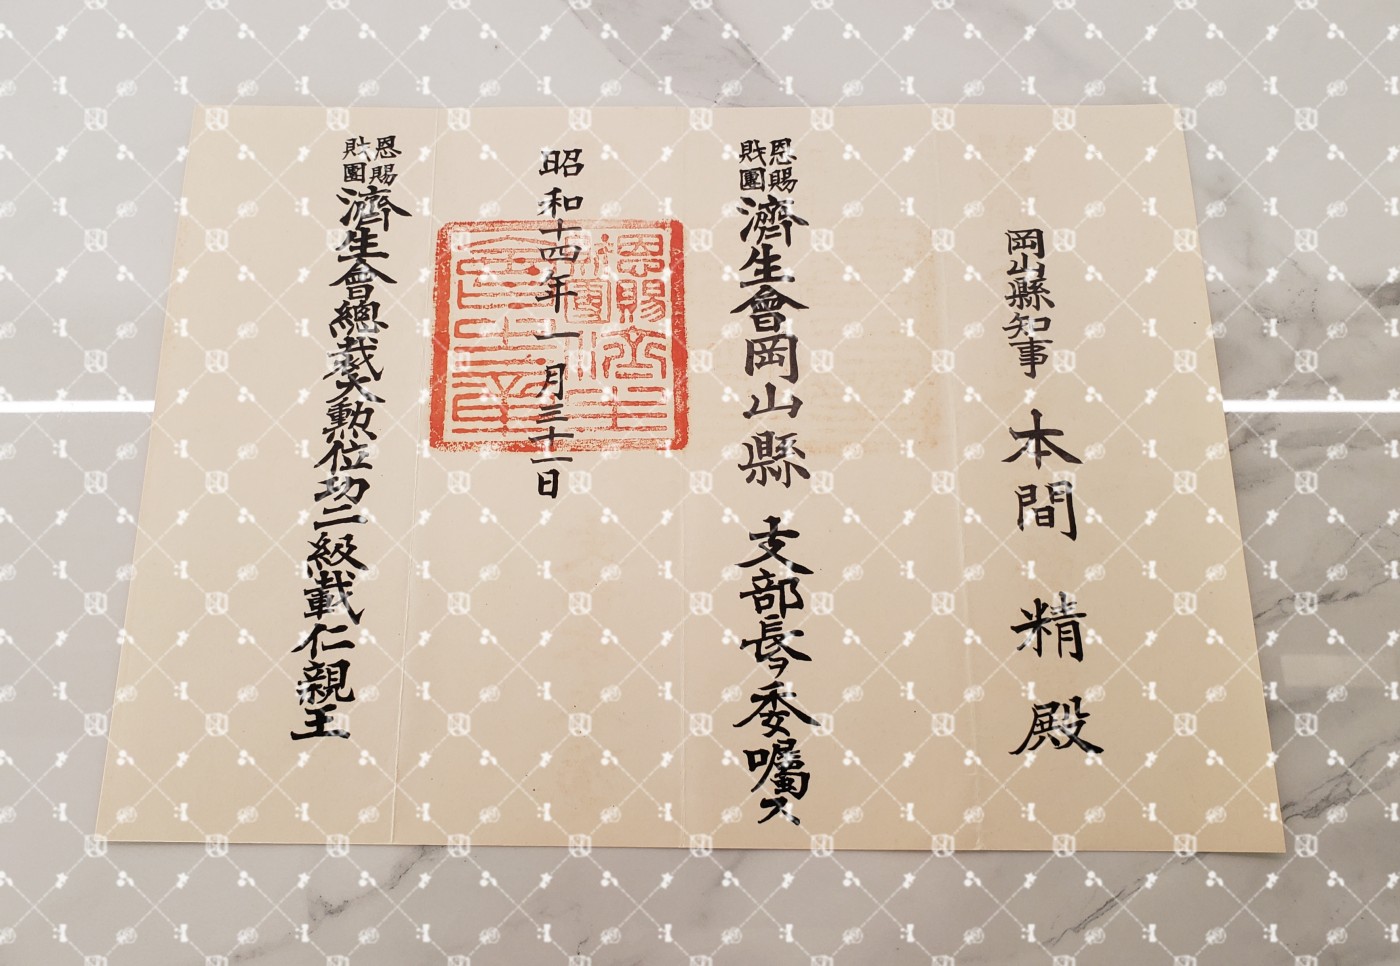 岡山縣知事 本間 精 殿
恩賜財團濟生會岡山縣 支部長ヲ委囑ス
昭和十四年一月三十一日
恩賜財團濟生會總裁大勲位功二級載仁親王